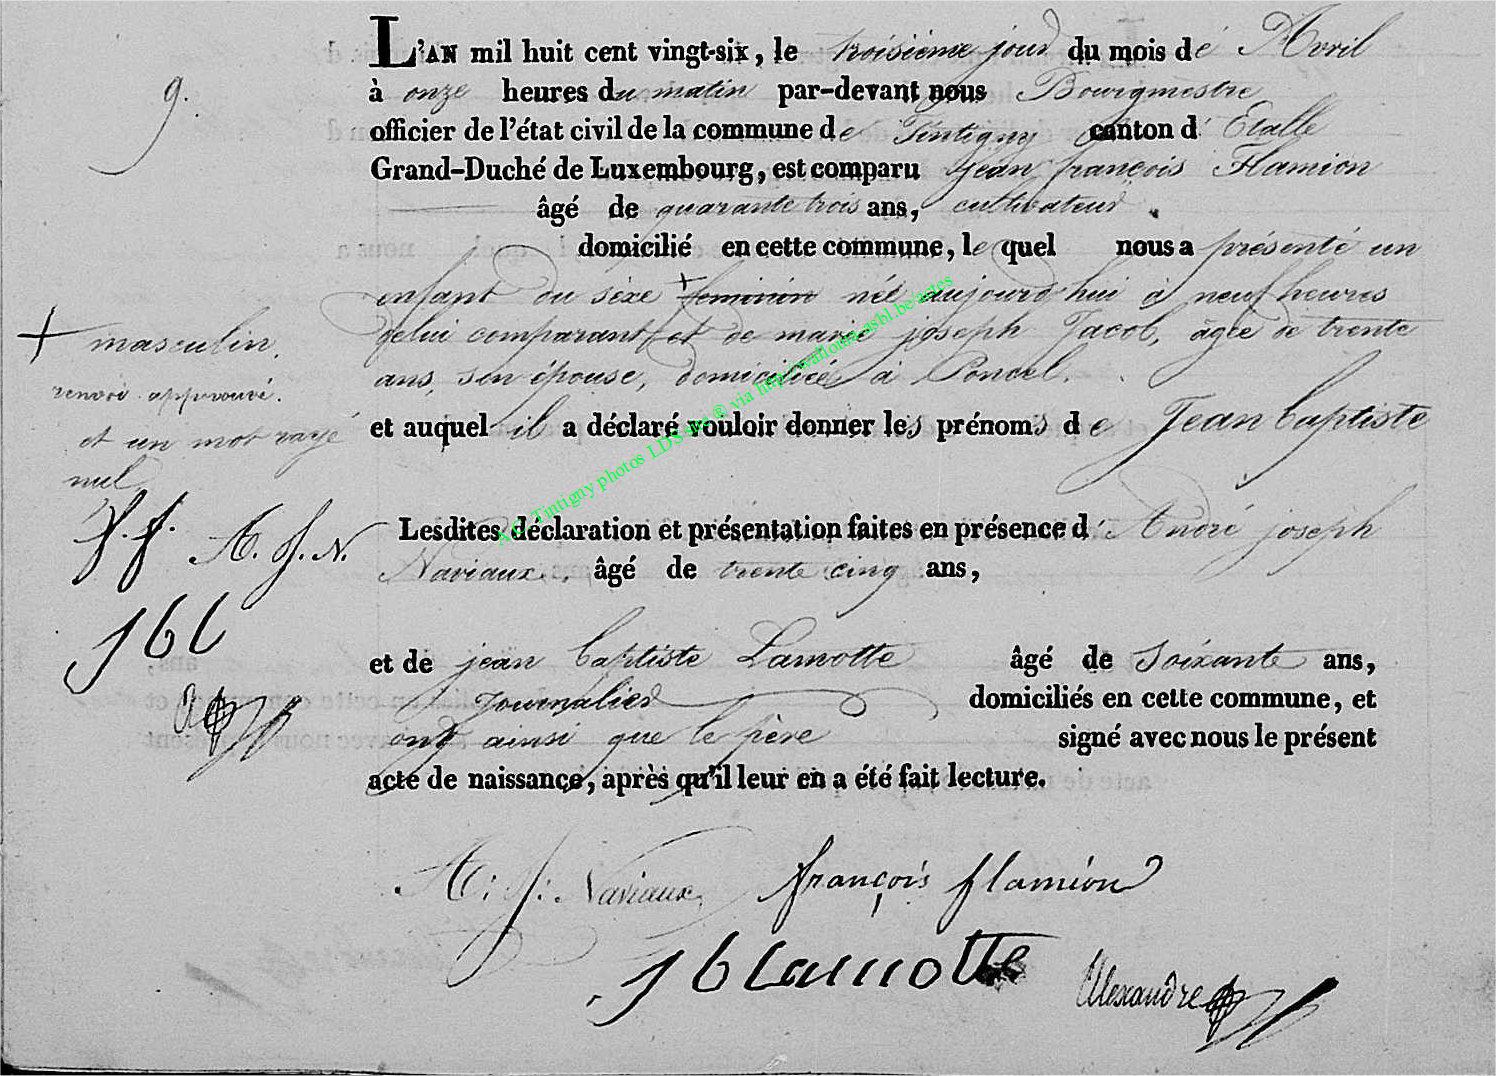 L'AN mil huit cent vingt-six, le troisième jour du mois dé Avril
9.
à onze heures du matin par-devant nous Bourgmestre
officier de l'état civil de la commune de Tintigny canton d' Etalle
Grand-Duché de Luxembourg, est comparu Jean françois Flamion
âgé de quarante trois ans, cultivateur
domicilié en cette commune, le quel nous a présenté un
enfant du sèxe + feminin néé aujourd'hui à neuf heures
de lui comparant et de marie joseph Jacob, âgée de trente
ans, son épouse, domiciliée à Poncel.
+ masculin.
renvoi approuvé.
et un mot rayé
nul.
et auquel il a déclaré vouloir donner les prénoms de Jean baptiste
f. f. A. J. N.
JbL
Lesdites déclaration et présentation faites en présence d' André joseph
Naviaux. âgé de trente cinq ans,
et de jean baptiste Lamotte âgé de soixante ans,
Journalier domiciliés en cette commune, et
ont ainsi que le père signé avec nous le présent
acte de naissance, après qu'il leur en a été fait lecture.
A: J: Naviaux françois flamion
Jb Lamotte Alexandre
Tintigny photos LDS via http://wallonia-asbl.be/actes